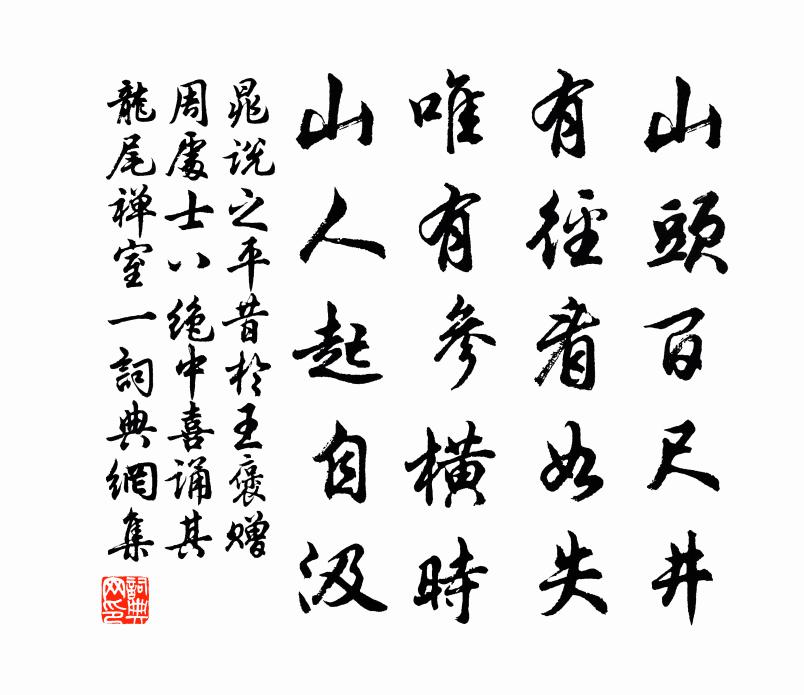 山頭百尺井
有徑看如失
唯有參橫時
山人起自汲
晁说之平昔於王褒贈
周處士八绝中喜诵其
龍尾禅室一詞典網集
詞典網印